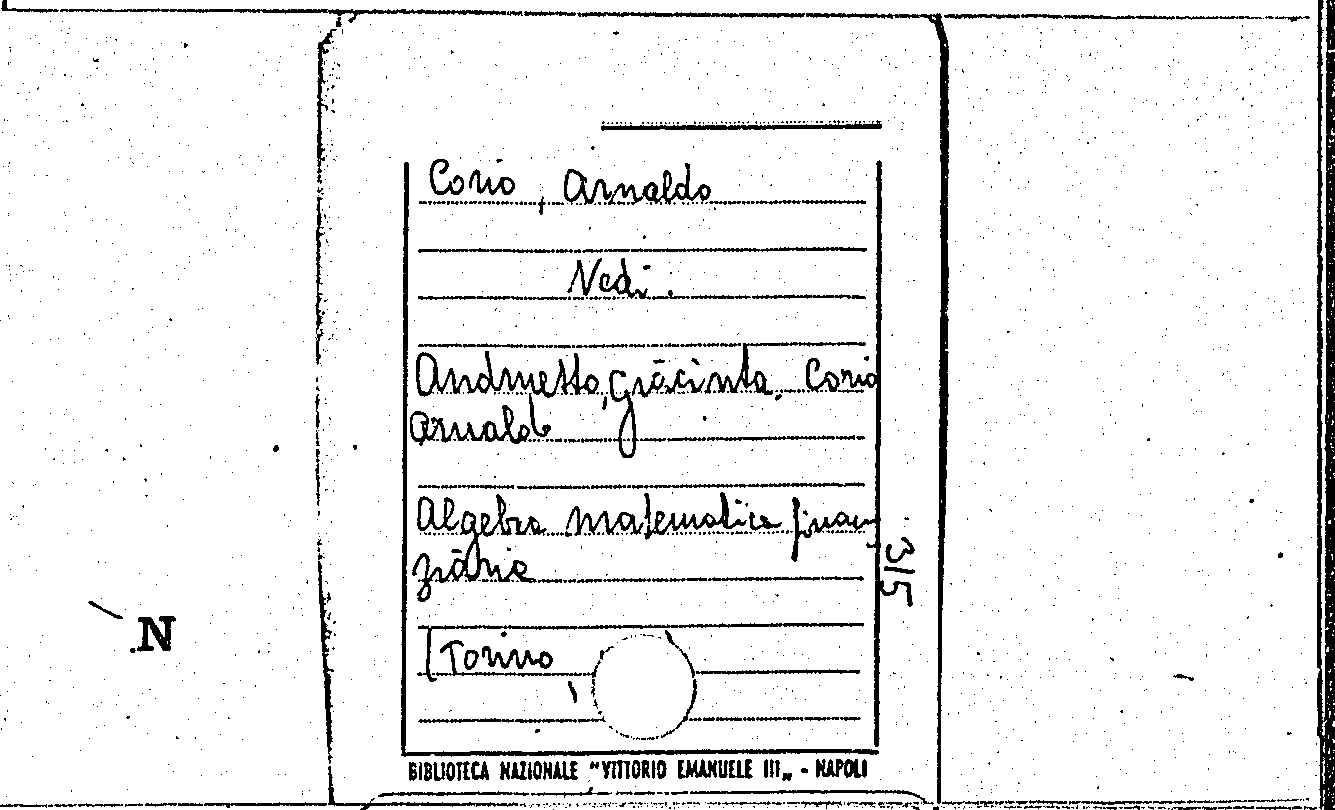 Corio, Arnaldo
Vedi.
Andruetto, Giacinta, Corio
Arnaldo
Algebra matematica finan,
ziaria
[Torino
3/5
N
BIBLIOTECA NAZIONALE "VITTORIO EMANUELE III„ - NAPOLI